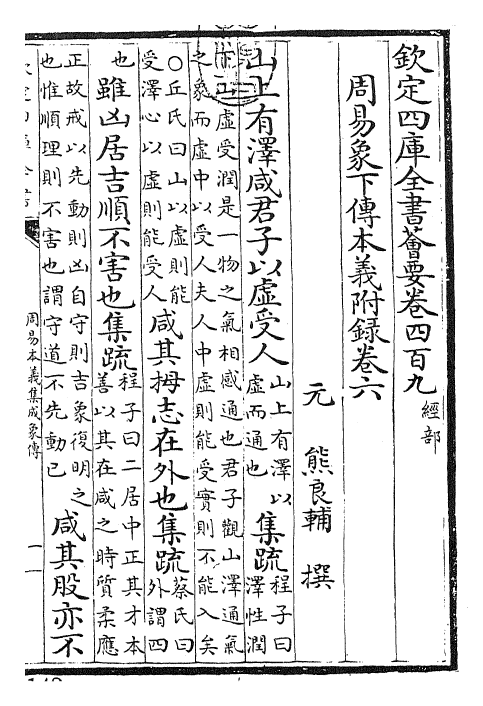 欽定四庫全書薈要卷四百九 經部
周易象下傳本義附錄卷六
元 熊良輔 撰
山上有澤咸君子以虛受人 山上有澤以虛而通也 集疏 程子曰澤性潤
虛受潤是一物之氣相感通也君子觀山澤通氣
之象而虛中以受人夫人中虛則能受實則不能入矣
○丘氏曰山以虛則能受澤心以虛則能受人 咸其拇志在外也集疏 蔡氏曰外謂四
也 雖凶居吉順不害也集疏 程子曰二居中正其才本善以其在咸之時質柔應
正故戒以先動則凶自守則吉象復明之也惟順理則不害也謂守道不先動已 咸其股亦不
周易本義集成象傳